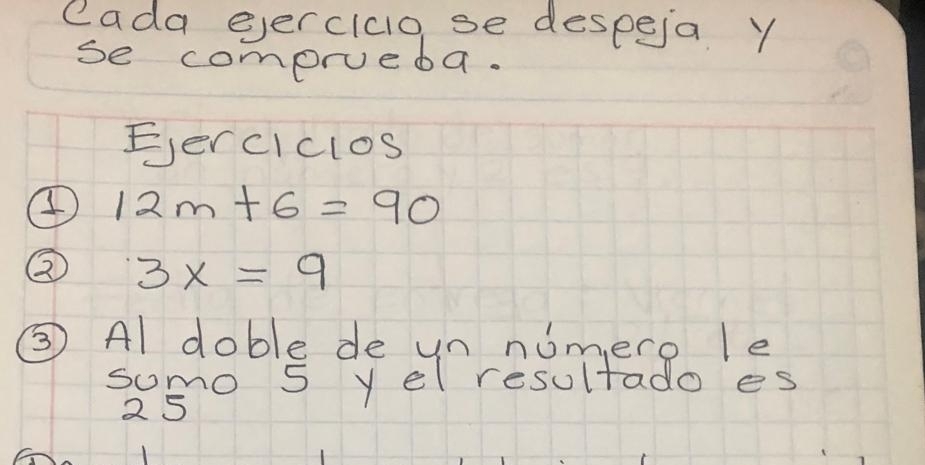 Cada ejercicio se despeja y
se comprueba.
Ejercicios
① 12m + 6 = 90
② 3x = 9
③ Al doble de un número le
sumo 5 y el resultado es
25